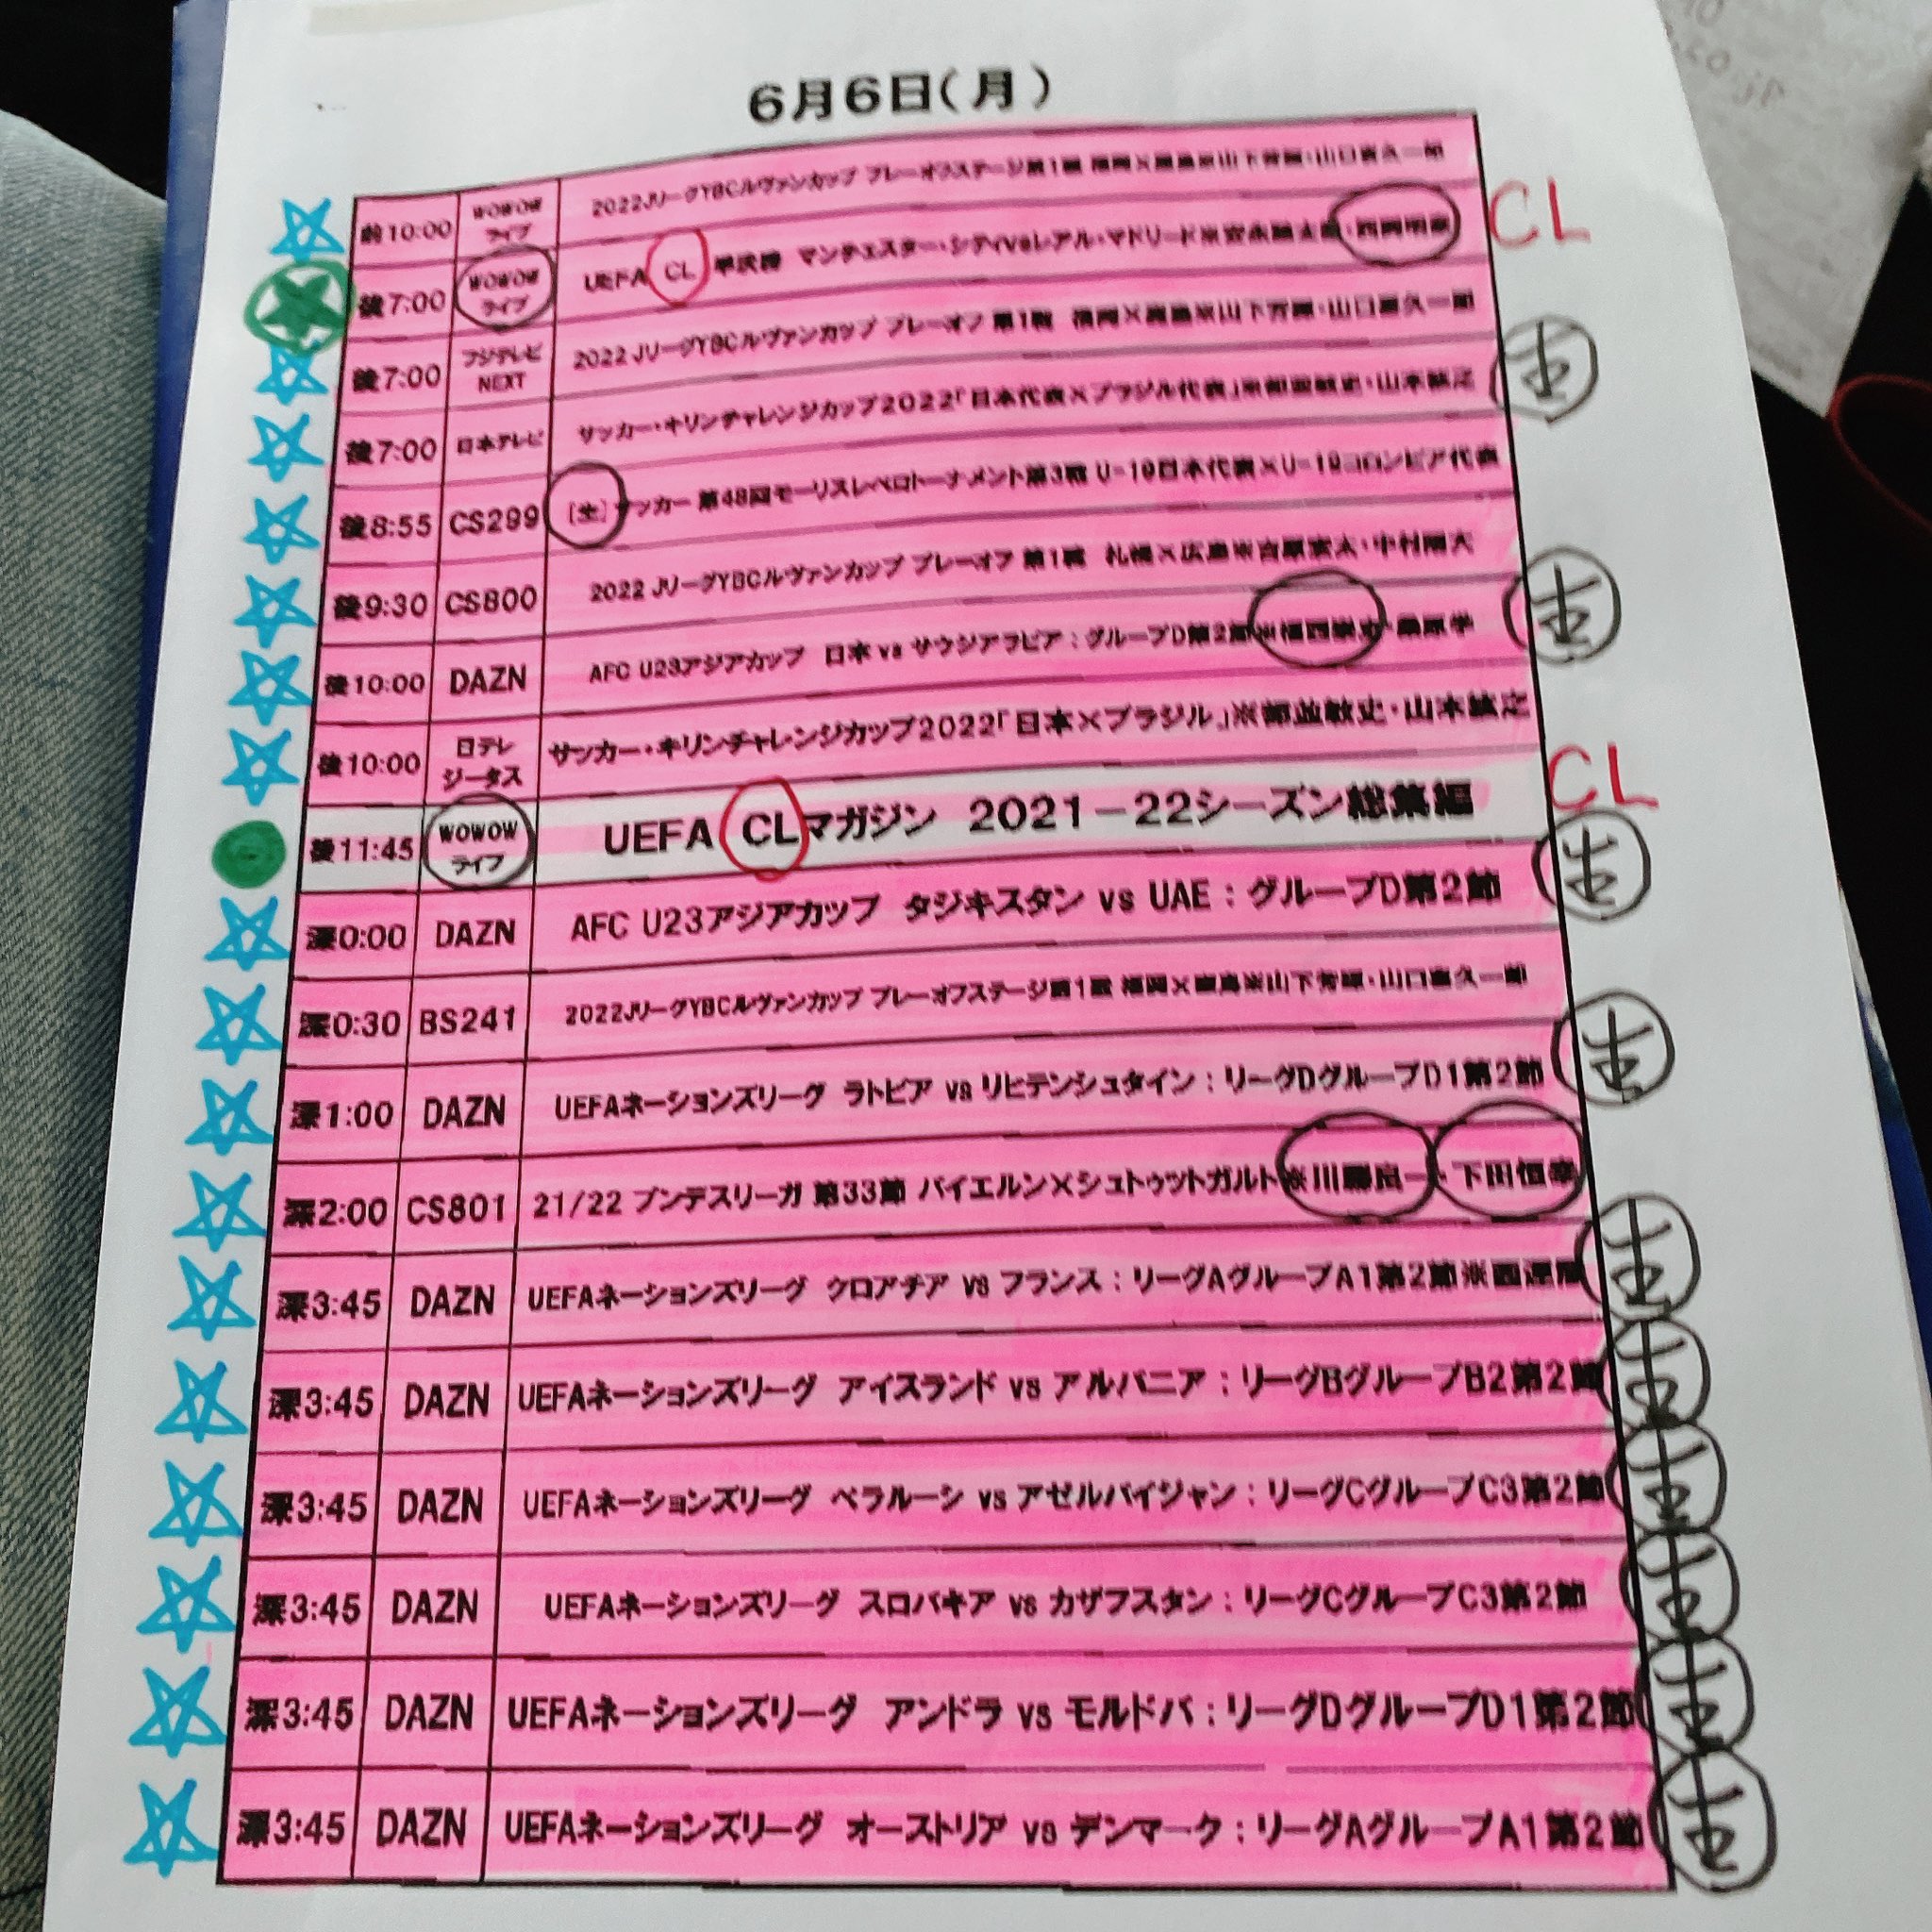 6月6日(月)
前10:00 WOWOWライブ 2022JリーグYBCルヴァンカップ プレーオフステージ第1戦 福岡×鹿島※山下芳輝・山口喜久一郎
CL
後7:00 WOWOWライブ UEFA CL 準決勝 マンチェスター・シティvsレアル・マドリード※安永聡太郎・西岡明彦
後7:00 フジテレビNEXT 2022 JリーグYBCルヴァンカップ プレーオフ 第1戦 福岡×鹿島※山下芳輝・山口喜久一郎
後7:00 日本テレビ サッカー・キリンチャレンジカップ2022「日本代表×ブラジル代表」※都並敏史・山本紘之
生
後8:55 CS299 [生]サッカー 第48回モーリスレベロトーナメント第3戦 U-19日本代表×U-19コロンビア代表
後9:30 CS800 2022 JリーグYBCルヴァンカップ プレーオフ 第1戦 札幌×広島※吉原宏太・中村陽大
後10:00 DAZN AFC U23アジアカップ 日本 vs サウジアラビア:グループD第2節※福西崇史・桑原学
生
後10:00 日テレジータス サッカー・キリンチャレンジカップ2022「日本×ブラジル」※都並敏史・山本紘之
CL
後11:45 WOWOWライブ UEFA CLマガジン 2021-22シーズン総集編
深0:00 DAZN AFC U23アジアカップ タジキスタン vs UAE:グループD第2節
生
深0:30 BS241 2022JリーグYBCルヴァンカップ プレーオフステージ第1戦 福岡×鹿島※山下芳輝・山口喜久一郎
深1:00 DAZN UEFAネーションズリーグ ラトビア vs リヒテンシュタイン:リーグDグループD1第2節
生
深2:00 CS801 21/22 ブンデスリーガ 第33節 バイエルン×シュトゥットガルト※川勝良一・下田恒幸
深3:45 DAZN UEFAネーションズリーグ クロアチア vs フランス:リーグAグループA1第2節※西
生
深3:45 DAZN UEFAネーションズリーグ アイスランド vs アルバニア:リーグBグループB2第2節
生
深3:45 DAZN UEFAネーションズリーグ ベラルーシ vs アゼルバイジャン:リーグCグループC3第2節
生
深3:45 DAZN UEFAネーションズリーグ スロバキア vs カザフスタン:リーグCグループC3第2節
生
深3:45 DAZN UEFAネーションズリーグ アンドラ vs モルドバ:リーグDグループD1第2節
生
深3:45 DAZN UEFAネーションズリーグ オーストリア vs デンマーク:リーグAグループA1第2節
生